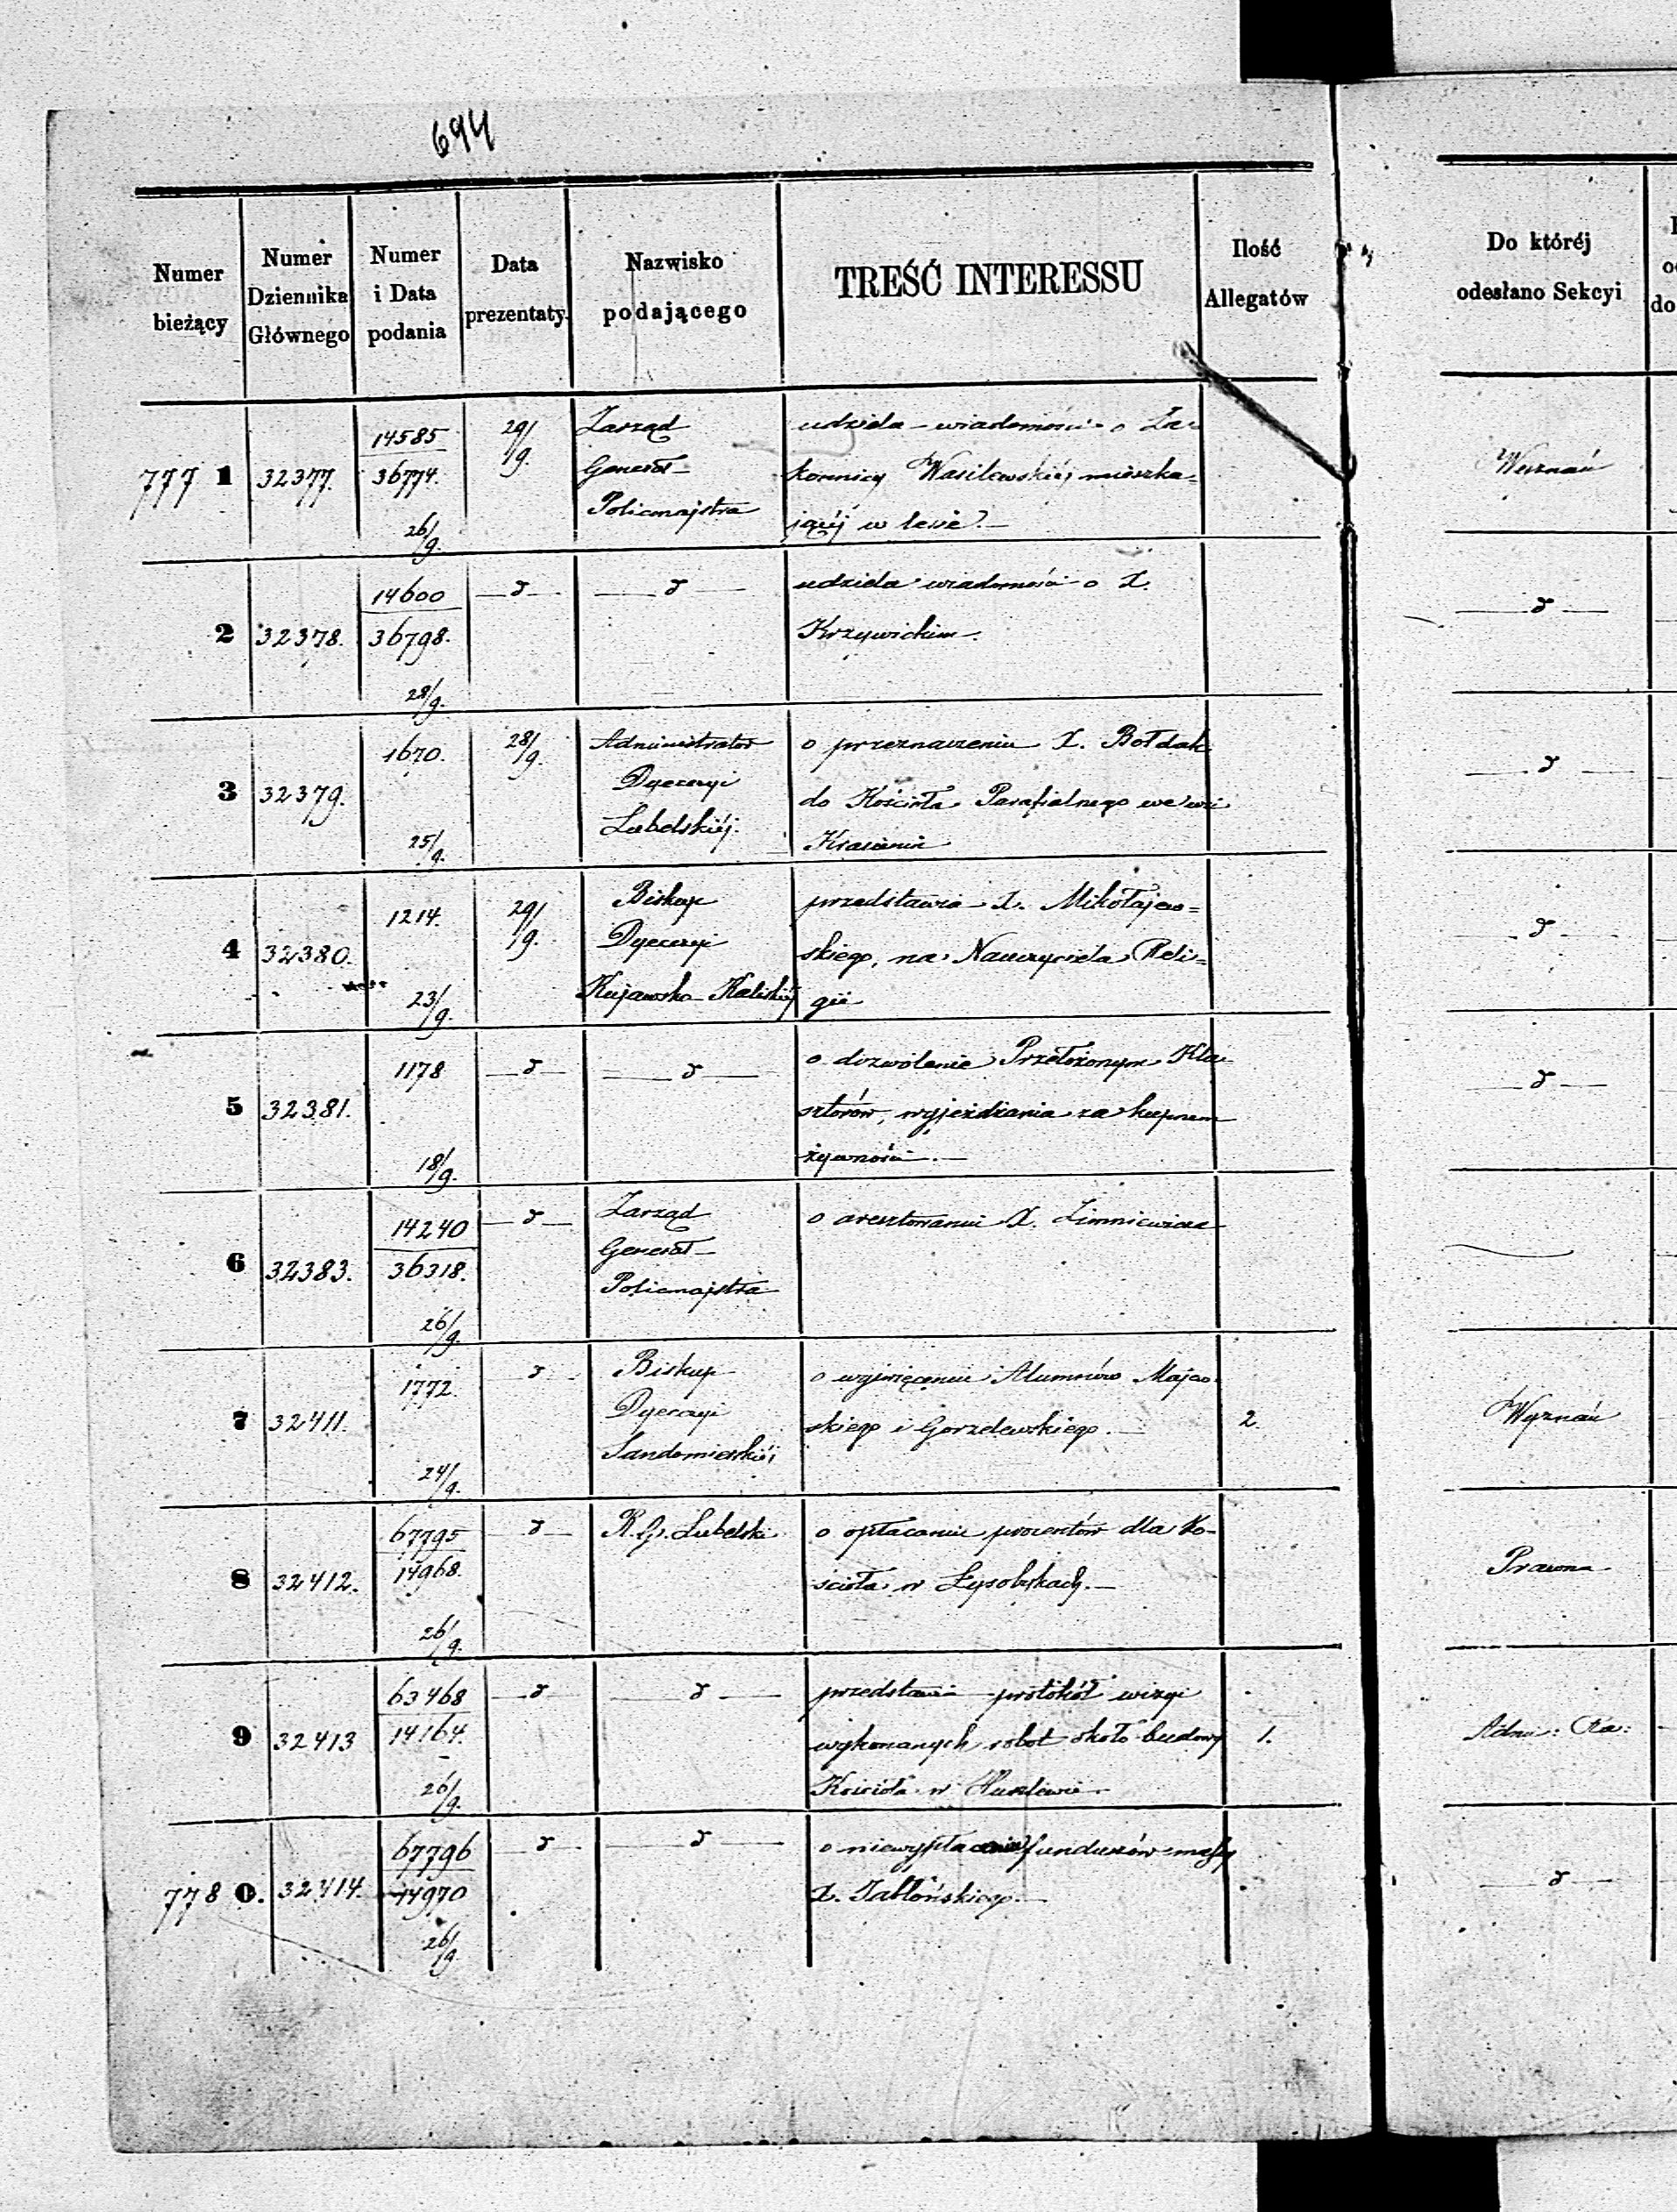 694
Numer bieżący
Numer Dziennika Głównego
Numer i Data podania
Data prezentaty.
Nazwisko podającego
TREŚĆ INTERESSU
Ilość Allegatów
Do któréj odesłano Sekcyi
777 1
32377.
14585
36774.
26/9.
29/9.
Zarząd
Generał-
Policmajstra
udziela wiadomości o Za-
konnicy Wasilewskiéj mieszka=
jącéj w lesie.
Wyznań
2
32378.
14600
36798.
28/9.
d
d
udziela wiadomości o X.
Krzywickim.
d
3
32379.
1670.
25/9.
28/9.
Administrator
Dyecezyi
Lubelskiéj.
o przeznaczeniu X. Bołdak
do Kościoła Parafialnego we wsi
d
4
32380.
1214.
23/9.
29/9.
Biskup
Dyecezyi
Kujawsko-Kaliskiéj
przedstawia X. Mikołajew=
skiego, na Nauczyciela Reli=
gii
d
5
32381.
1178
18/9.
d
d
o dozwolenie Przełożonym Kla-
sztorów, wyjeżdżania za kupnem
żywności.
d
6
32383.
14240
36318.
26/9.
d
Zarząd
Generał-
Policmajstra
o aresztowaniu X. Zimniewicza
7
32411.
1772.
24/9.
d
Biskup
Dyecezyi
Sandomierskiéj
o wyświęceniu Alumnów Majew-
skiego i Gorzelewskiego.
2.
Wyznań
8
32412.
67795
14968.
26/9.
d
R. G. Lubelski
o opłacaniu procentów dla Ko-
ścioła w Łysobykach.
Prawna
9
32413
63468
14164.
26/9.
d
d
przedstawia protokół wizyi
wykonanych robot około budowy
Kościoła w Huszlewie
1.
Adm: Ra:
778 0.
32414.
67796
14970
26/9.
d
d
o niewypłacanie funduszów massy
X. Jabłońskiego.
d